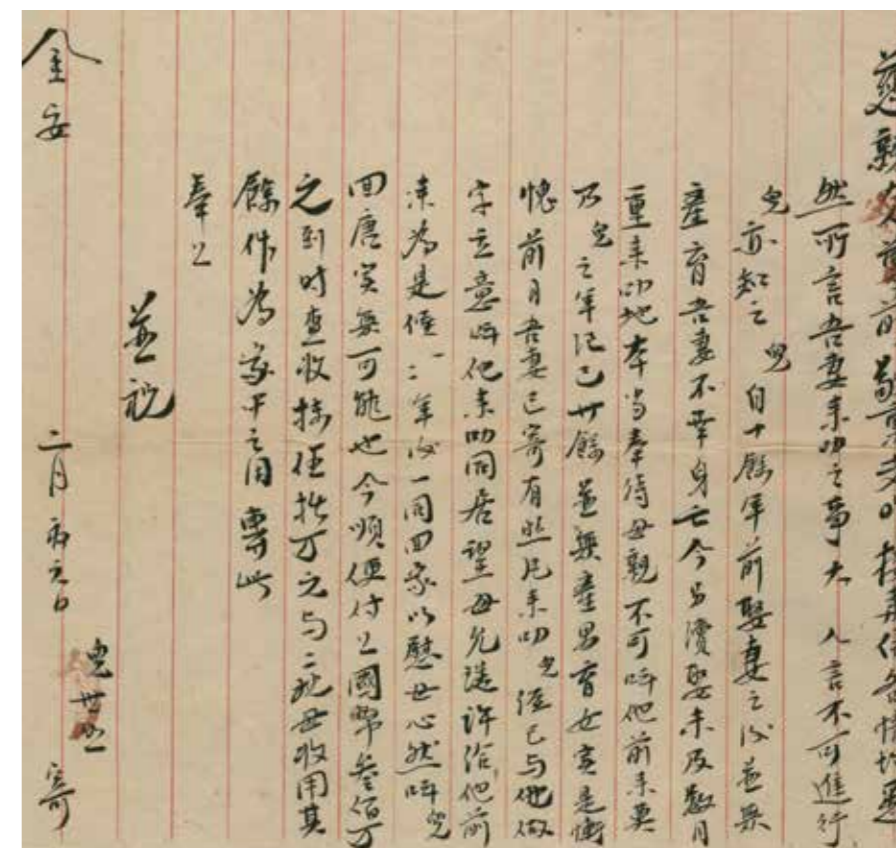 慈親大人膝前敬稟者叻接來信各情均悉
然所言吾妻來叻之事大人言不可進行
兒亦知之兒自十餘年前娶妻之後並無
產育吾妻不幸身亡今另續娶未及數月
重來叻地本当奉侍母親不可呼他前來奠
乃兒之年紀已廿餘並無產男育女實是慚
愧前月吾妻已寄有照片來叻兒經已与他做
字立意呼他來叻同居望母允諾許給他前
來為是候一二年後一同回家以慰母心然呼兒
回唐实無可能也今順便付上國幣叁佰万
之到时查收抹伍拾万元与二叔母收用其
餘作為家中之用專此
奉上
並祝
金安
二月初六日
兒世 寄